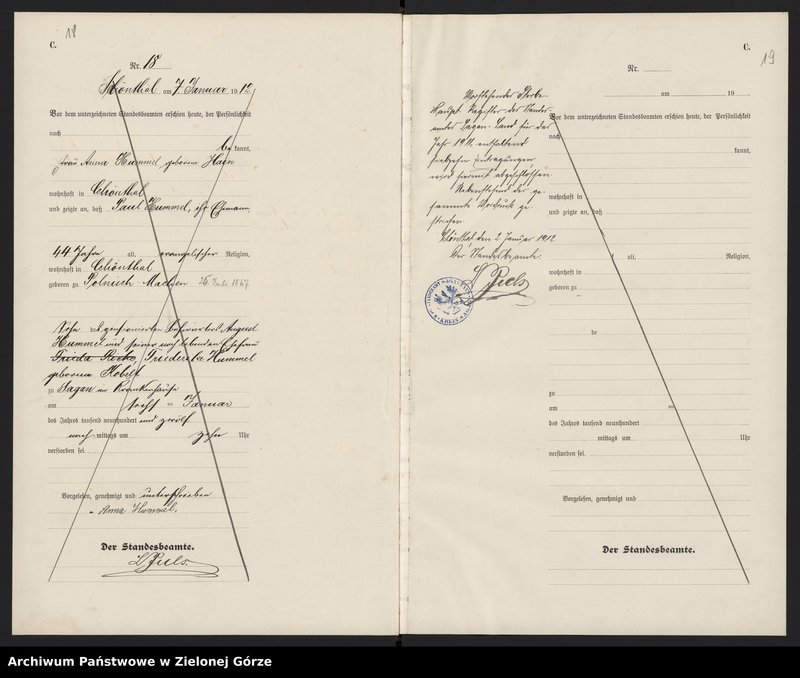 18
C.
Nr. 18
Schönthal am 7 Januar 1912.
Vor dem unterzeichneten Standesbeamten erschien heute, der Persönlichkeit
nach
be kannt,
Frau Anna Hummel geborene Hain
wohnhaft in Schönthal
und zeigte an, daß Paul Hummel, ihr Ehemann,
44 Jahre alt, evangelischer Religion,
wohnhaft in Schönthal
geboren zu Polnisch Machen
Sohn August
Hummel und seiner noch lebenden Ehefrau
Friederike Hummel
geborene
zu Sagan im Krankenhause
am Januar
des Jahres tausend neunhundert und zwölf
nach mittags um zehn Uhr
verstorben sei.
Vorgelesen, genehmigt und unterschrieben
Anna Hummel.
Der Standesbeamte.
19
C.
Nr.
am 19
Vorstehendes Sterbe-
Haupt Register des Standes-
amtes Sagan-Land für das
Jahr 1911, enthaltend
siebzehn Eintragungen
wird hiermit abgeschlossen.
Nebenstehend der ge-
sammte Vordruck ge-
strichen
Schönthal, den 2. Januar 1912.
Der Standesbeamte.
Vor dem unterzeichneten Standesbeamten erschien heute, der Persönlichkeit
nach
kannt,
wohnhaft in
und zeigte an, daß
alt, Religion,
wohnhaft in
geboren zu
de
zu
am ten
des Jahres tausend neunhundert
mittags um Uhr
verstorben sei.
Vorgelesen, genehmigt und
Der Standesbeamte.
Archiwum Państwowe w Zielonej Górze